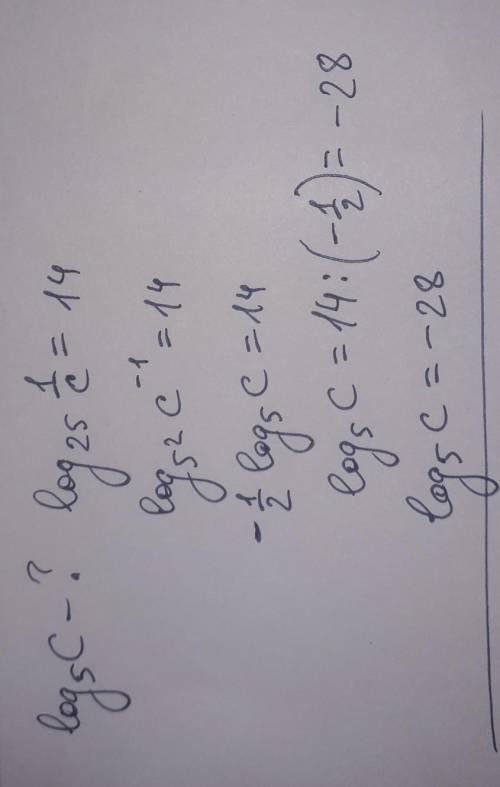 log₅C - ? log₂₅ 1/c = 14
log₅² C⁻¹ = 14
- 1/2 log₅ C = 14
log₅ C = 14 : (- 1/2) = - 28
log₅ C = - 28